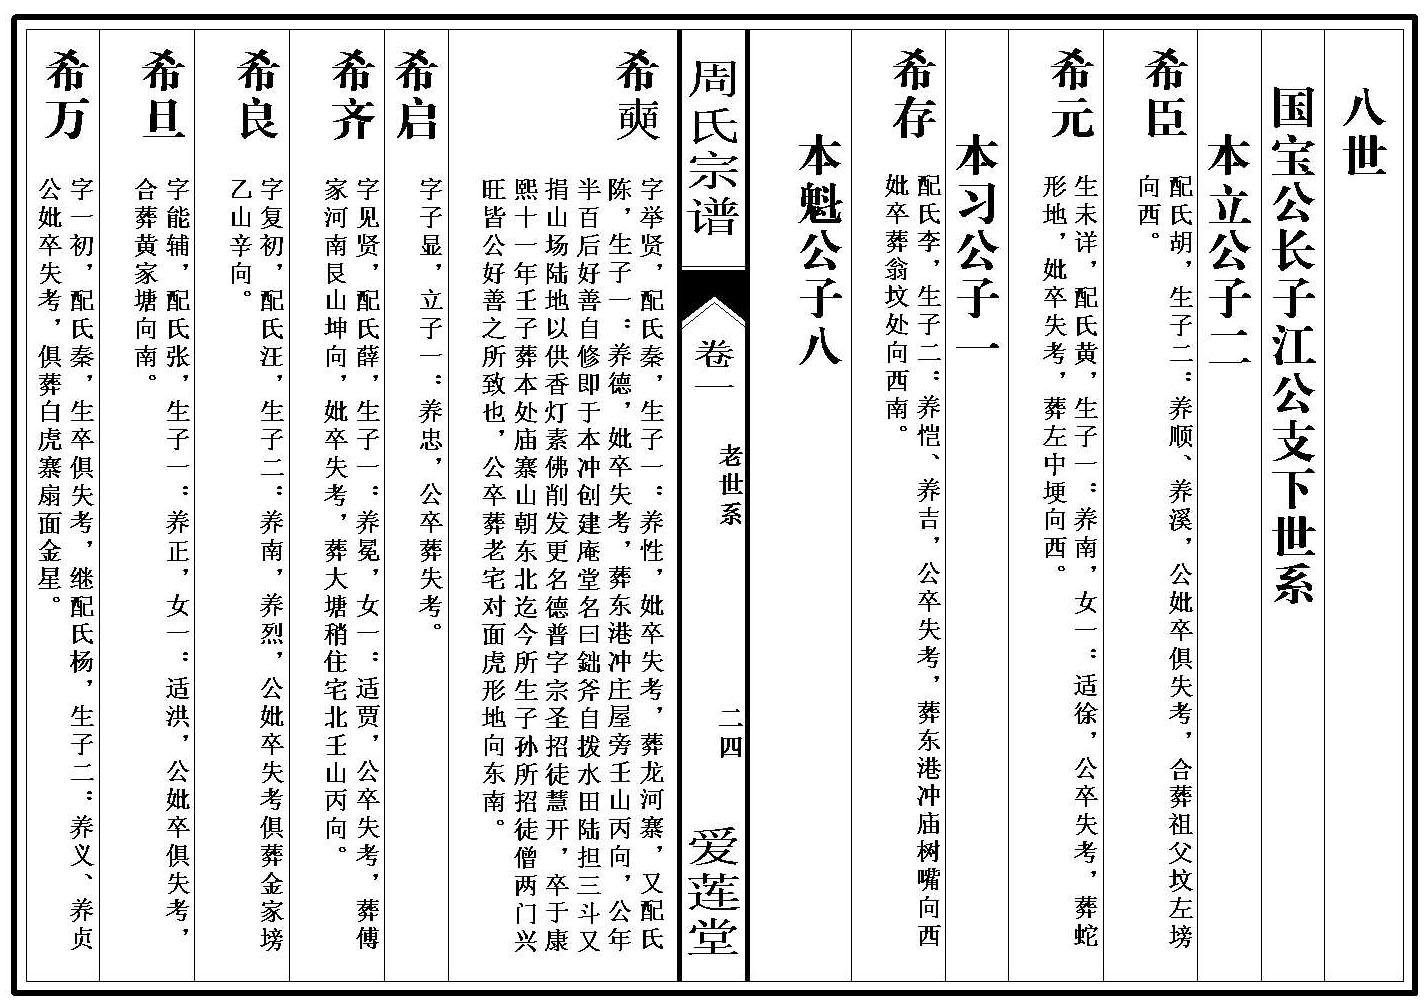 八世
国宝公长子江公支下世系
本立公子二
希臣
配氏胡，生子二：养顺、养溪，公妣卒俱失考，合葬祖父坟左塝
向西。
希元
生未详，配氏黄，生子一：养南，女一：适徐，公卒失考，葬蛇
形地，妣卒失考，葬左中埂向西。
本习公子一
希存
配氏李，生子二：养恺、养吉，公卒失考，葬东港冲庙树嘴向西
妣卒葬翁坟处向西南。
本魁公子八
周氏宗谱
卷一
老世系
二四
爱莲堂
希奭
字举贤，配氏秦，生子一：养性，妣卒失考，葬龙河寨，又配氏
陈，生子一：养德，妣卒失考，葬东港冲庄屋旁壬山丙向，公年
半百后好善自修即于本冲创建庵堂名曰鈯斧自拨水田陆担三斗又
捐山场陆地以供香灯素佛削发更名德普字宗圣招徒慧开，卒于康
熙十一年壬子葬本处庙寨山朝东北迄今所生子孙所招徒僧两门兴
旺皆公好善之所致也，公卒葬老宅对面虎形地向东南。
希启
字子显，立子一：养忠，公卒葬失考。
希齐
字见贤，配氏薛，生子一：养冕，女一：适贾，公卒失考，葬傅
家河南艮山坤向，妣卒失考，葬大塘稍住宅北壬山丙向。
希良
字复初，配氏汪，生子二：养南，养烈，公妣卒失考俱葬金家塝
乙山辛向。
希旦
字能辅，配氏张，生子一：养正，女一：适洪，公妣卒俱失考，
合葬黄家塘向南。
希万
字一初，配氏秦，生卒俱失考，继配氏杨，生子二：养义、养贞
公妣卒失考，俱葬白虎寨扇面金星。